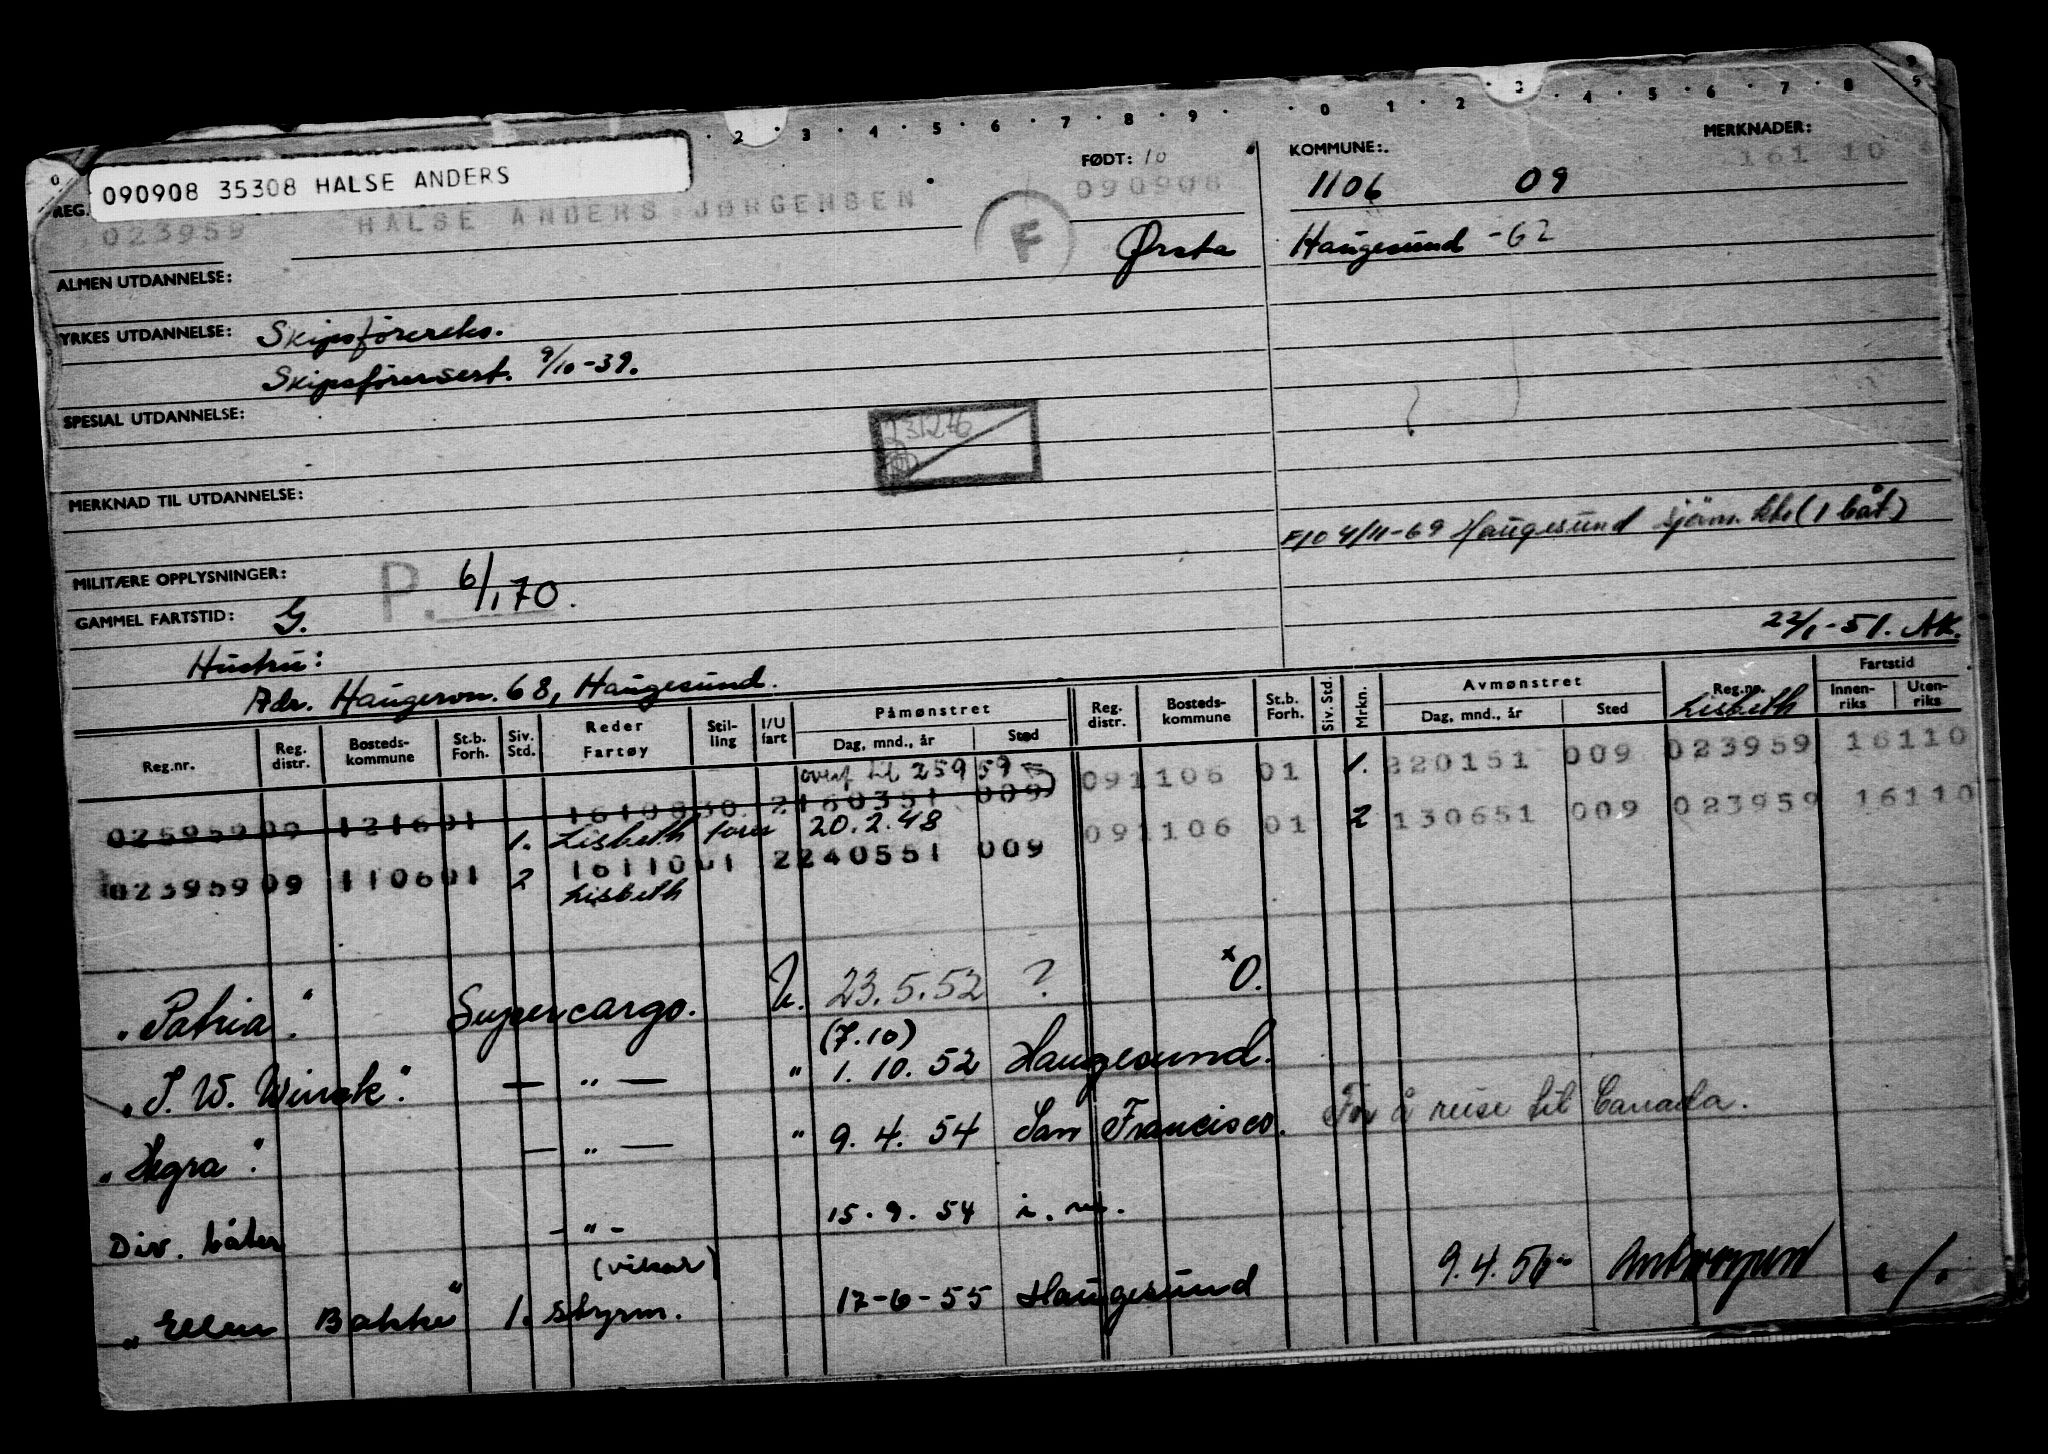 0 · 2 · 3 · 4 · 5 · 6 · 7 · 8 · 9 · 0 · 1 · 2 · 3 · 4 · 5 · 6 · 7 · 8 · 9
090908 35308 HALSE ANDERS
REG.
023959 HALSE ANDERS JØRGENSEN
F
FØDT: 10
090908
Ørsta
KOMMUNE:
1106 09
Haugesund -62
MERKNADER:
161 10
ALMEN UTDANNELSE:
YRKES UTDANNELSE: Skipsförereks.
Skipsförersert. 9/10-39.
SPESIAL UTDANNELSE:
231276
MERKNAD TIL UTDANNELSE:
4/11-69 Haugesund sjöm. ktr (1 båt)
MILITÆRE OPPLYSNINGER:
P. 6/1 70.
GAMMEL FARTSTID: G.
22/1-51. AK.
Hustru:
Adr. Haugervn. 68, Haugesund.
Reg.nr. Reg. distr. Bosteds-kommune St.b. Forh. Siv. Std. Reder Fartøy Stil-ling I/U fart Påmønstret Dag, mnd., år Sted Reg. distr. Bosteds-kommune St.b. Forh. Siv. Std. Mrkn. Avmønstret Dag, mnd., år Sted Reg.nr. Fartstid Innen-riks Uten-riks
Lisbeth
overf til 259 59
025959 09 1216 01 16108 30 2 160351 009 091106 01 1. 220151 009 023959 16110
1. Lisbeth förer 20.2.48
023959 09 1106 01 2 16110 01 2 240551 009 091106 01 2 130651 009 023959 16110
Lisbeth
"Patria". Supercargo. U. 23.5.52 ? x O.
(7.10)
"J. W. Winck". — " — " 1.10.52 Haugesund.
"Hegra". — " — " 9.4.54 San Francisco. For å reise til Canada.
Div. båter - " - 15.9.54
(vikar)
"Ellen Bakke" 1. styrm. 17-6-55 Haugesund 9.4.56 Antwerpen